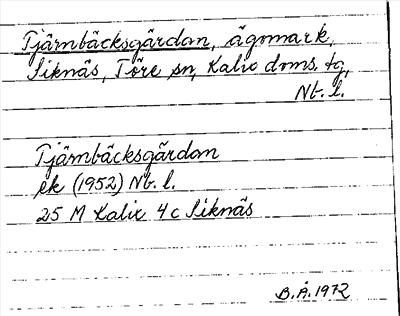 Tjärnbäcksgärdan, ägomark,
Siknäs, Töre sn, Kalix doms. tg,
Nb. l.
Tjärnbäcksgärdan
ek (1952) Nb. l.
25 M Kalix 4 c Siknäs
B.Å. 1972